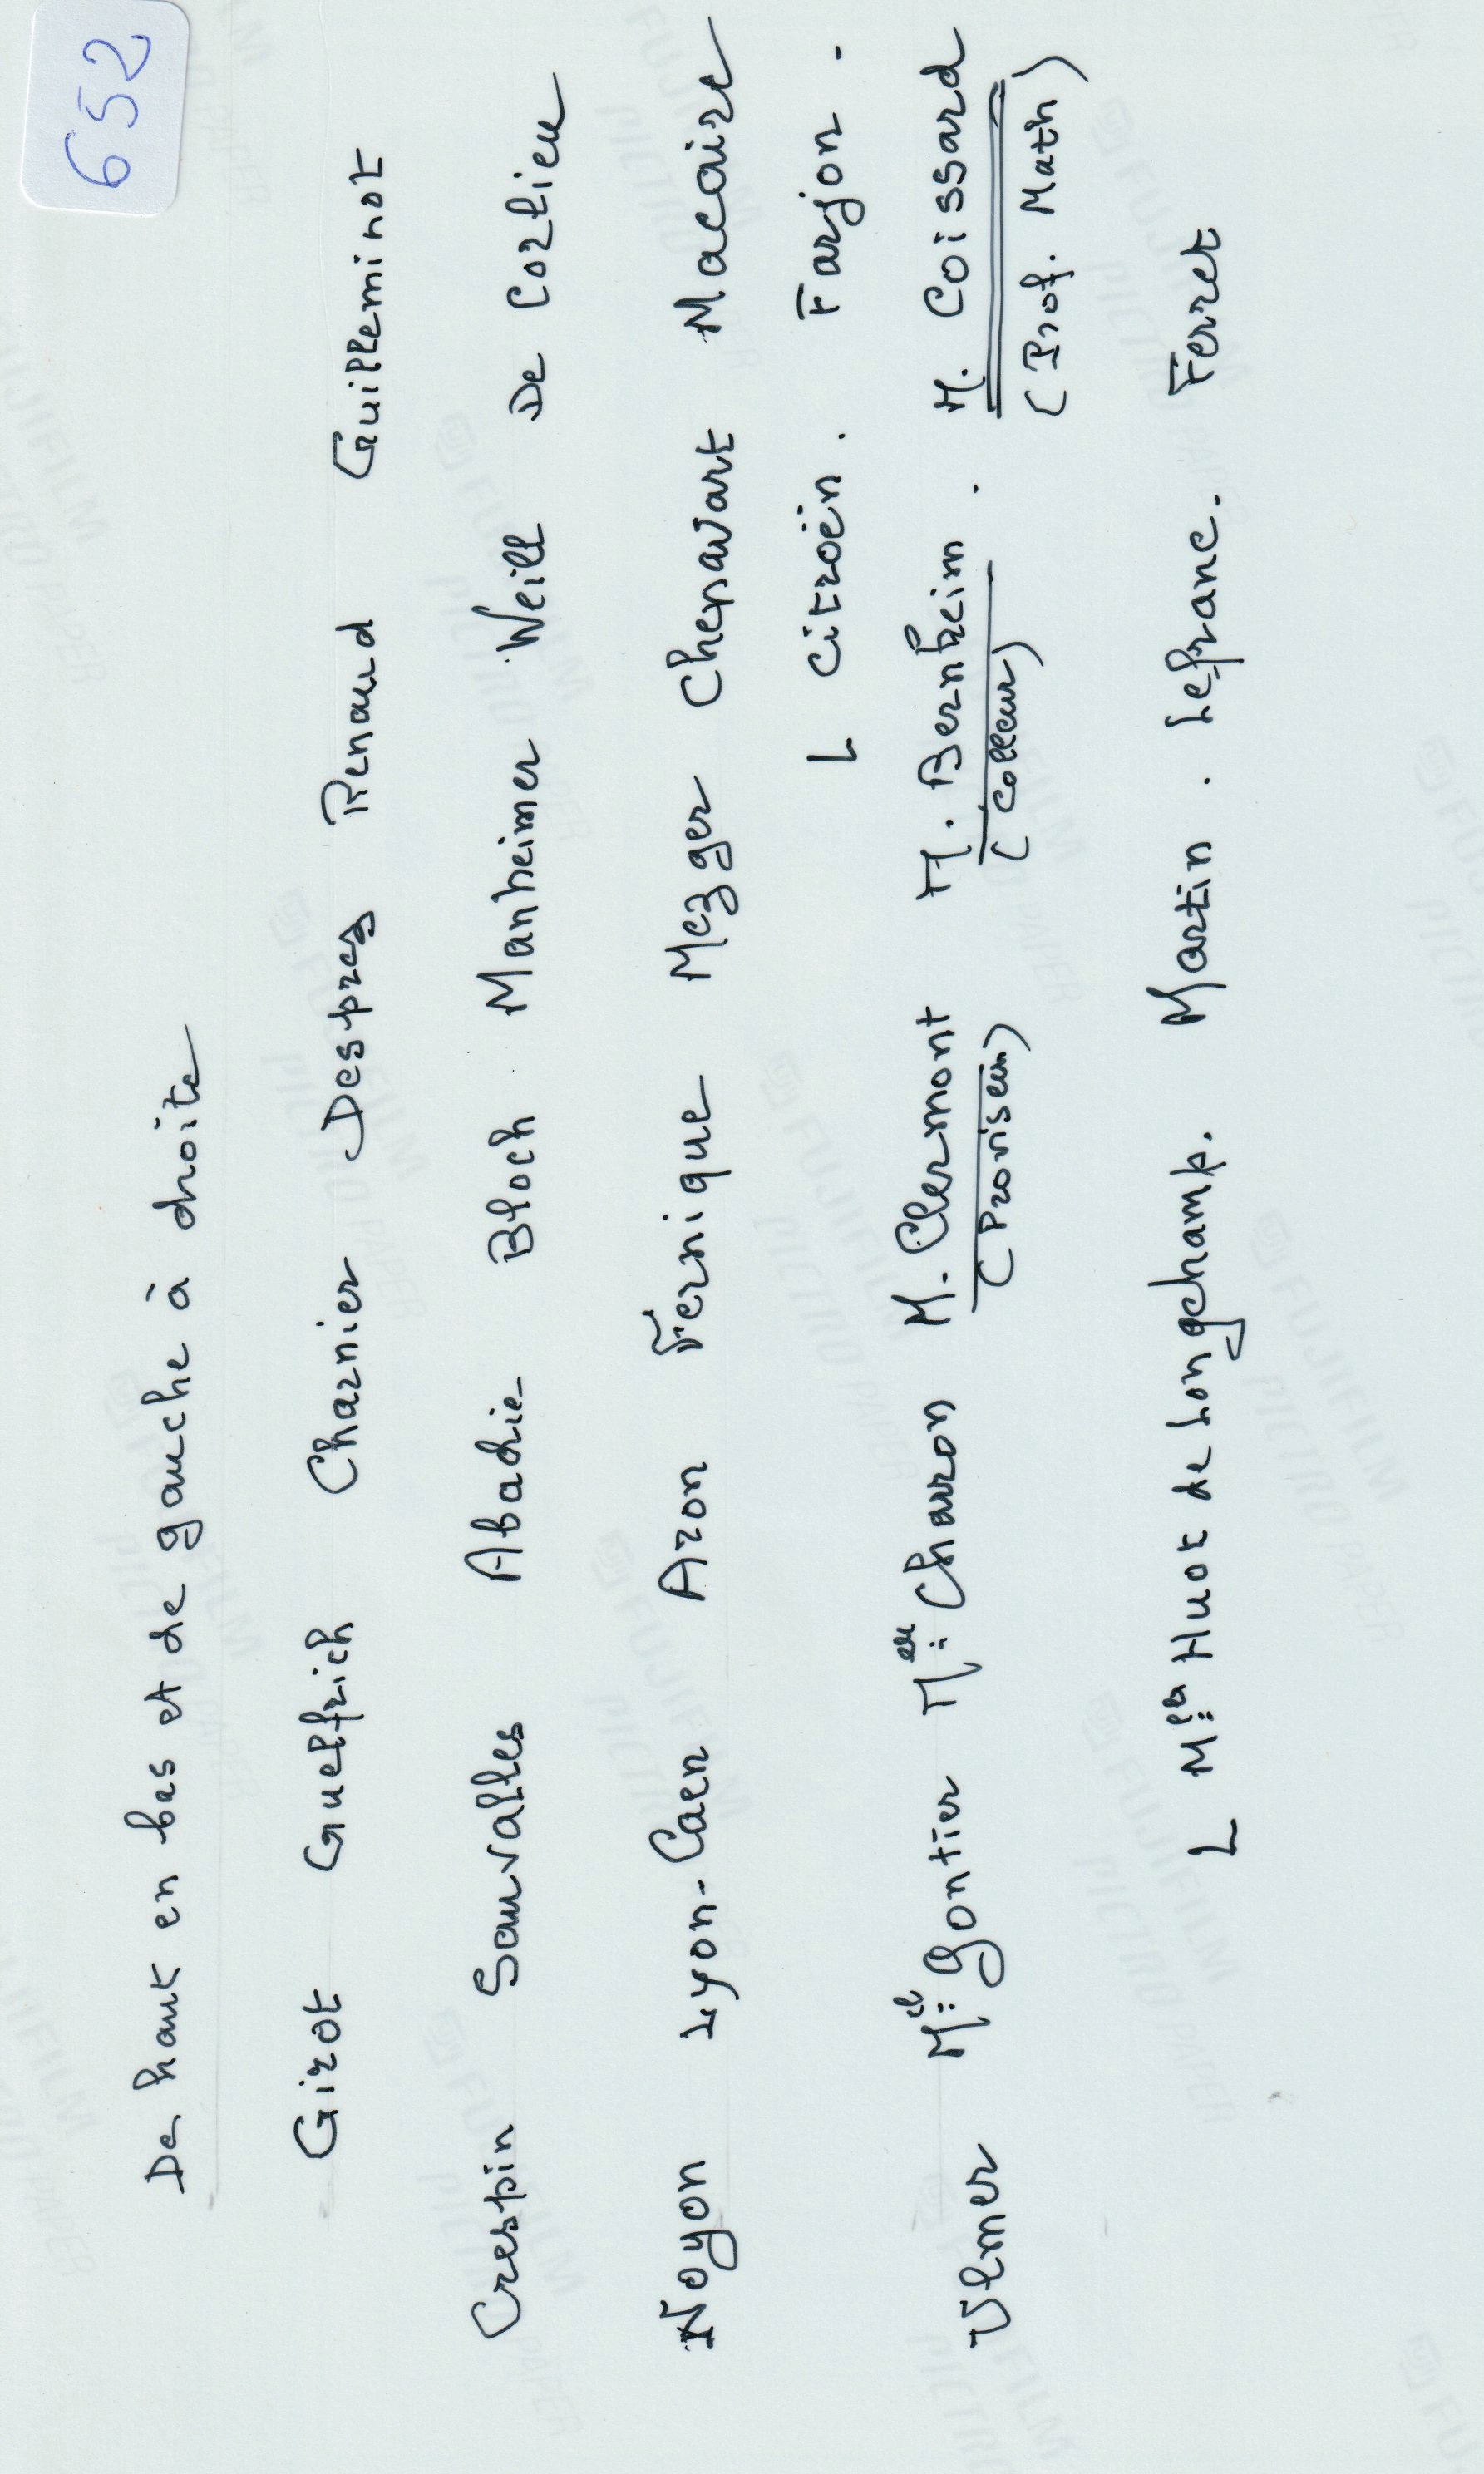 652
De haut en bas et de gauche à droite
Girot Guelfrich Charnier Desprez Renaud Guilleminot
Crespin Sauvalles Abadie Bloch Manheimer Weill De Corlieu
Noyon Lyon-Caen Aron Fernique Mezger Chenavart Macaire
L Citroën. Farjon.
Ulmer Mlle Gontier Mlle Charron M. Clermont M. Bernheim. M. Coissard
(Proviseur) (Colleur) (Prof. Math)
L Mlle Huot de Longchamp. Martin. Lefranc. Ferret